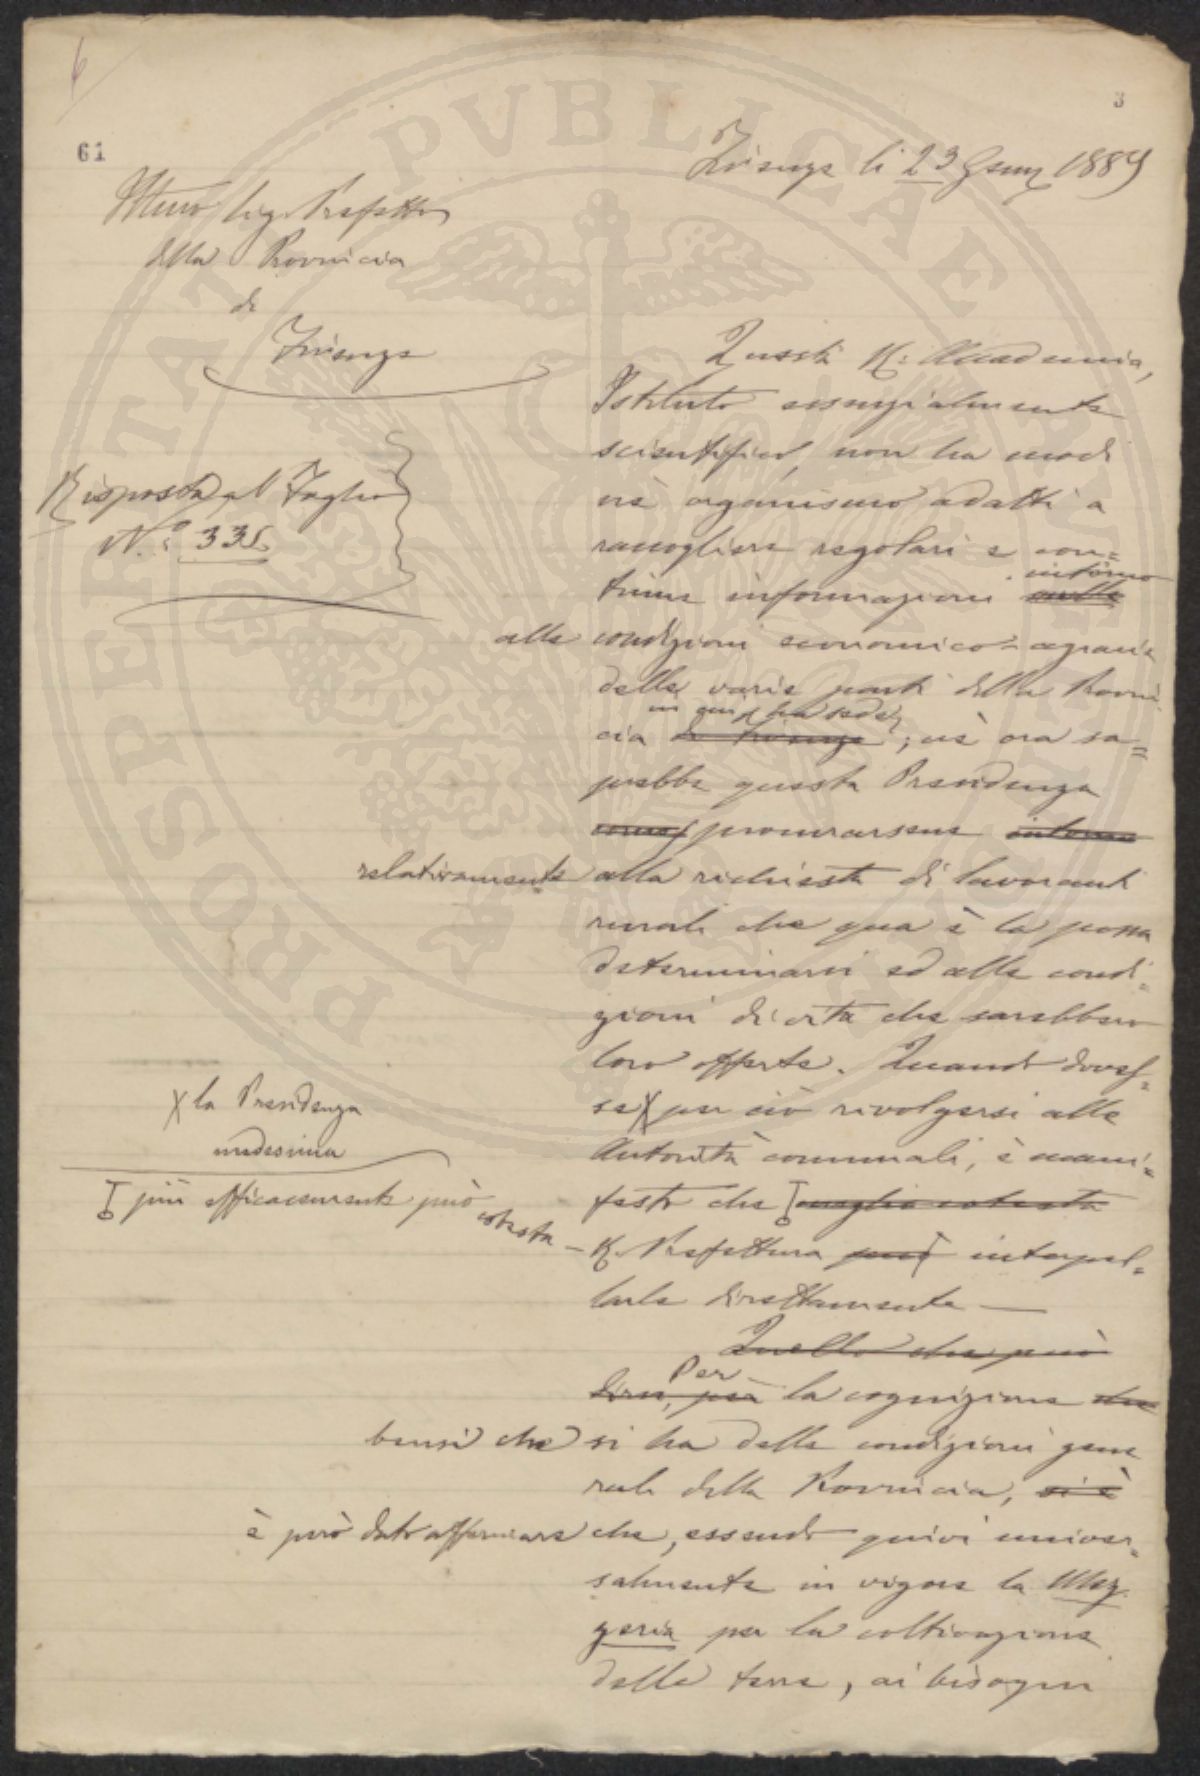 6
3
61
Firenze li 23 Genn 1889
Illmo Sig. Prefetto
della Provincia
di
Firenze
Risposta al Foglio
N.º 335
Questa R. Accademia,
Istituto essenzialmente
scientifico, non ha modi
nè organismo adatti a
raccogliere regolari e con=
intorno
tinue informazioni sulle
alle condizioni economico-agrarie
delle varie parti della Provin
in cui ha sede
cia di Firenze; nè ora sa=
prebbe questa Presidenza
come procurarsene intorno
relativamente alla richiesta di lavoranti
rurali che qua e là possa
determinarsi ed alle condi=
zioni di vita che sarebbero
loro offerte. Quando doves=
X la Presidenza
medesima
se X per ciò rivolgersi alle
Autorità comunali, è mani=
più efficacemente può cotesta
festo che meglio cotesta
R. Prefettura può interpel=
larle direttamente —
Quello che può
Per
dirsi, però la cognizione che
bensì che si ha delle condizioni gene
rali della Provincia, si è
è però dato affermare che, essendo quivi univer=
salmente in vigore la Mez
zeria per la coltivazione
delle terre, ai bisogni
PROSPERITATI PVBLICAE